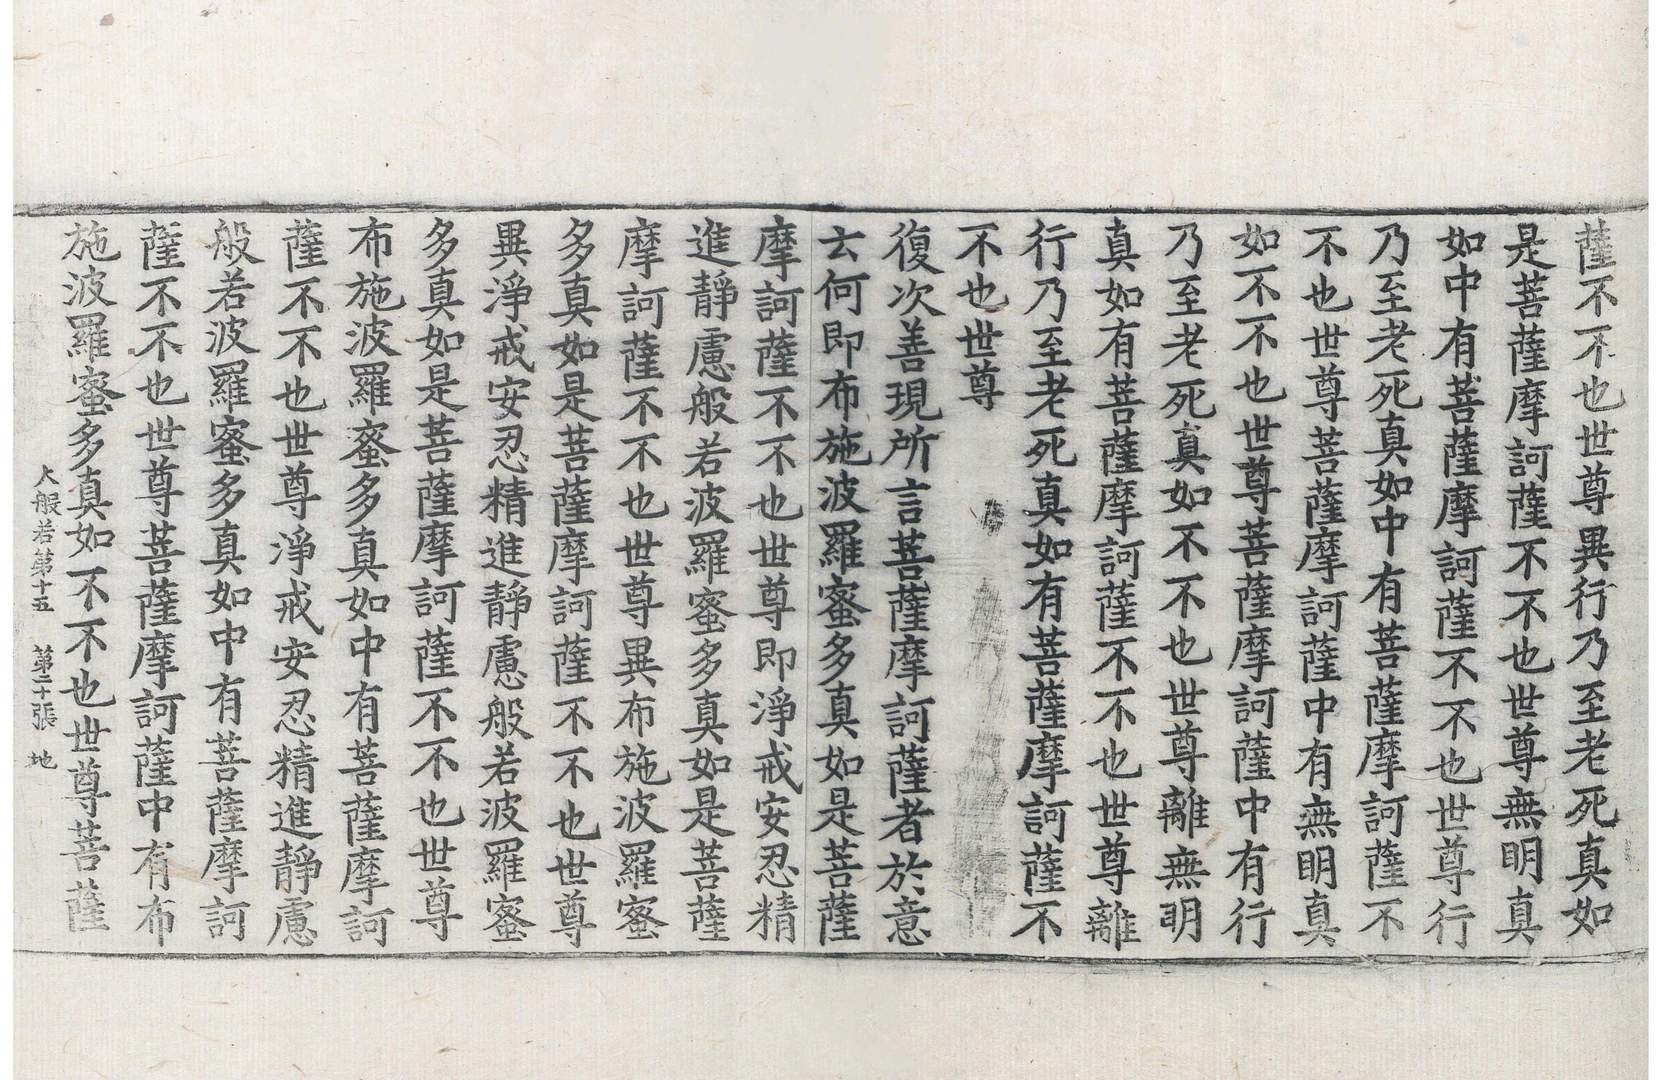 薩不不也世尊異行乃至老死真如
是菩薩摩訶薩不不也世尊無明真
如中有菩薩摩訶薩不不也世尊行
乃至老死真如中有菩薩摩訶薩不
不也世尊菩薩摩訶薩中有無明真
如不不也世尊菩薩摩訶薩中有行
乃至老死真如不不也世尊離無明
真如有菩薩摩訶薩不不也世尊離
行乃至老死真如有菩薩摩訶薩不
不也世尊
復次善現所言菩薩摩訶薩者於意
云何即布施波羅蜜多真如是菩薩
摩訶薩不不也世尊即淨戒安忍精
進靜慮般若波羅蜜多真如是菩薩
摩訶薩不不也世尊異布施波羅蜜
多真如是菩薩摩訶薩不不也世尊
異淨戒安忍精進靜慮般若波羅蜜
多真如是菩薩摩訶薩不不也世尊
布施波羅蜜多真如中有菩薩摩訶
薩不不也世尊淨戒安忍精進靜慮
般若波羅蜜多真如中有菩薩摩訶
薩不不也世尊菩薩摩訶薩中有布
施波羅蜜多真如不不也世尊菩薩
大般若第十五 第二十張 地